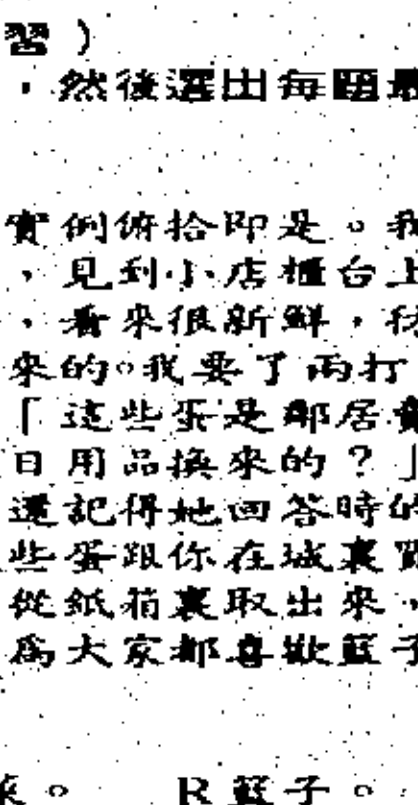 習）
，然後選出每題最
實例俯拾即是。我
，見到小店櫃台上
，看來很新鮮，
來的。我要了兩打
「這些蛋是鄰居
日用品換來的？」
還記得她回答時的
些蛋跟你在城裏買
從紙箱裏取出來，
為大家都喜歡籃子
來。 R籃子。